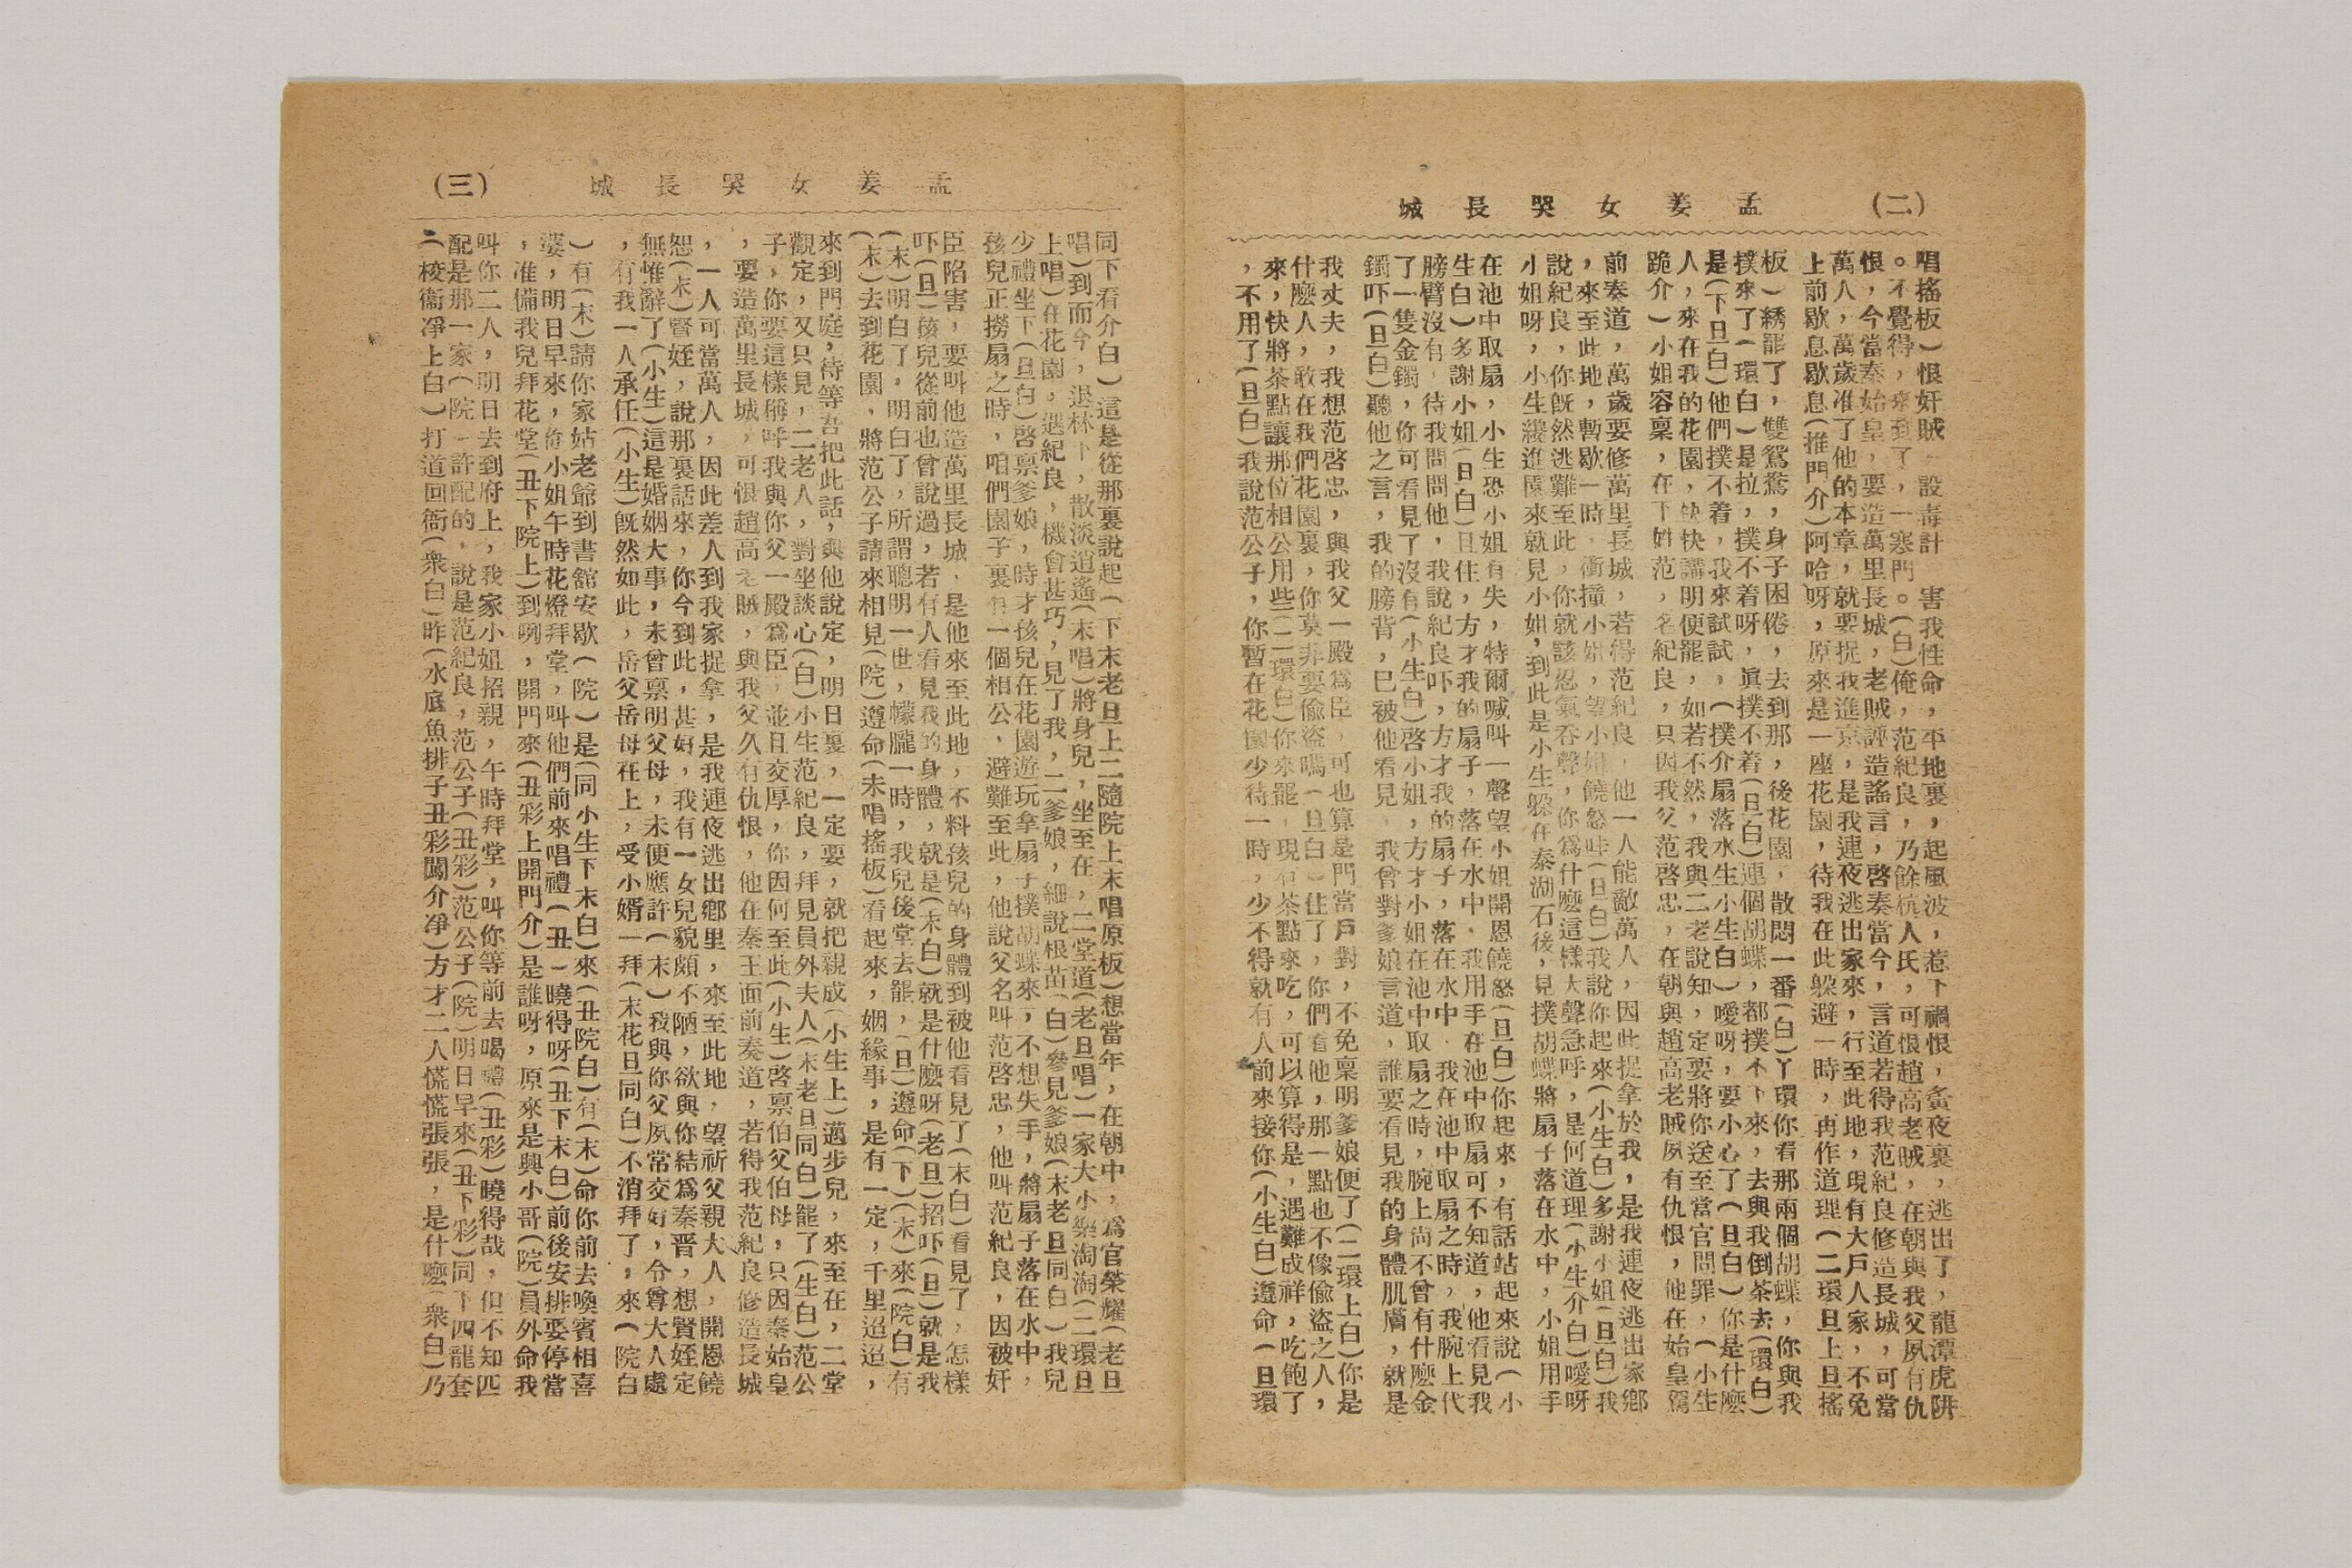 (二)
孟姜女哭長城
唱搖板)恨奸賊設毒計害我性命,平地裏,起風波,惹下禍恨,黃夜裏,逃出了,龍潭虎阱
。不覺得,來到了,一寨門。(白)俺,范紀良,乃餘杭人氏,可恨趙高老賊,在朝與我父夙有仇
恨,今當秦始皇,要造萬里長城,老賊誣造謠言,啓奏當今,言道若得我范紀良修造長城,可當
萬人,萬歲准了他的本章,就要捉我進京,是我連夜逃出家來,行至此地,現有大戶人家,不免
上前歇息歇息(推門介)阿哈呀,原來是一座花園,待我在此躲避一時,再作道理(二環旦上旦搖
板)綉罷了,雙鴛鴦,身子困倦,去到那,後花園,散悶一番(白)丫環你看那兩個胡蝶,你與我
撲來了(環白)是拉,撲不着呀,眞撲不着(旦白)連個胡蝶,都撲不下來,去與我倒茶去(環白)
是(下旦白)他們撲不着,我來試試,(撲介扇落水生小生白)噯呀,要小心了(旦白)你是什麽
人,來在我的花園,快快講明便罷,如若不然,我與二老說知,定要將你送至當官問罪,(小生
跪介)小姐容稟,在下姓范,名紀良,只因我父范啓忠,在朝與趙高老賊夙有仇恨,他在始皇駕
前奏道,萬歲要修萬里長城,若得范紀良,他一人能敵萬人,因此捉拿於我,是我連夜逃出家鄉
,來至此地,暫歇一時,衝撞小姐,望小姐饒恕哇(旦白)我說你起來(小生白)多謝小姐(旦白)我
說紀良,你旣然逃難至此,你就該忍氣吞聲,你爲什麽這樣大聲急呼,是何道理(小生介白)噯呀
小姐呀,小生纔進園來就見小姐,到此是小生躱在泰湖石後,見撲胡蝶將扇子落在水中,小姐用手
在池中取扇,小生恐小姐有失,特爾喊叫一聲望小姐開恩饒恕(旦白)你起來,有話站起來說(小
生白)多謝小姐(旦白)且住,方才我的扇子,落在水中,我用手在池中取扇可不知道,他看見我
膀臂沒有,待我問問他,我說紀良吓,方才我的扇子,落在水中,我在池中取扇之時,我腕上代
了一隻金鐲,你可看見了沒有(小生白)啓小姐,方才小姐在池中取扇之時,腕上尙不曾有什麽金
鐲吓(旦白)聽他之言,我的膀背,已被他看見,我曾對爹娘言道,誰要看見我的身體肌膚,就是
我丈夫,我想范啓忠,與我父一殿爲臣,可也算是門當戶對,不免稟明爹娘便了(二環上白)你是
什麽人,敢在我們花園裏,你莫非要偷盜嗎(旦白)住了,你們看他,那一點也不像偷盜之人,
來,快將茶點讓那位相公用些(二環白)你來罷,現有茶點來吃,可以算得是,遇難成祥,吃飽了
,不用了(旦白)我說范公子,你暫在花園少待一時,少不得就有人前來接你(小生白)遵命(旦環
(三)
孟姜女哭長城
同下看介白)這是從那裏說起(下末老旦上二隨院上末唱原板)想當年,在朝中,爲官榮耀(老旦
唱)到而今,退林下,散淡逍遙(末唱)將身兒,坐至在,二堂道(老旦唱)一家大小樂淘淘(二環旦
上唱)在花園,遇紀良,機會甚巧,見了我,二爹娘,細說根苗(白)參見爹娘(末老旦同白)我兒
少禮坐下(旦白)啓禀爹娘,時才孩兒在花園遊玩拿扇子撲胡蝶來,不想失手,將扇子落在水中,
孩兒正撈扇之時,咱們園子裏有一個相公,避難至此,他說父名叫范啓忠,他叫范紀良,因被奸
臣陷害,要叫他造萬里長城,是他來至此地,不料孩兒的身體到被他看見了(末白)看見了,怎樣
吓(旦)孩兒從前也曾說過,若有人看見我的身體,就是(末白)就是什麽呀(老旦)招吓(旦)就是我
(末)明白了,明白了,所謂聰明一世,懞朧一時,我兒後堂去罷,(旦)遵命(下)(末)來(院白)有
(末)去到花園,將范公子請來相見(院)遵命(末唱搖板)看起來,姻緣事,是有一定,千里迢迢,
來到門庭,待等吾把此話,與他說定,明日裏,一定要,就把親成(小生上)邁步兒,來至在,二堂
觀定,又只見,二老人,對坐談心(白)小生范紀良,拜見員外夫人(末老旦同白)罷了(生白)范公
子,你要這樣稱呼我與你父一殿爲臣,並且交厚,你因何至此(小生)啓禀伯父伯母,只因秦始皇
,要造萬里長城,可恨趙高老賊,與我父久有仇恨,他在秦王面前奏道,若得我范紀良修造長城
,一人可當萬人,因此差人到我家捉拿,是我連夜逃出鄉里,來至此地,望祈父親大人,開恩饒
恕(末)賢姪,說那裏話來,你今到此,甚好,我有一女兒貌頗不陋,欲與你結爲秦晋,想賢姪定
無惟辭了(小生)這是婚姻大事,未曾禀明父母,未便應許(末)我與你父夙常交好,令尊大人處
,有我一人承任(小生)旣然如此,岳父岳母在上,受小婿一拜(末花旦同白)不消拜了,來(院白
)有(末)請你家姑老爺到書舘安歇(院)是(同小生下末白)來(丑院白)有(末)命你前去喚賓相喜
婆,明日早來,侖小姐午時花燈拜堂,叫他們前來唱禮(丑)曉得呀(丑下末白)前後安排要停當
,准備我兒拜花堂(丑下院上)到咧,開門來(丑彩上開門介)是誰呀,原來是興小哥(院)員外命我
叫你二人,明日去到府上,我家小姐招親,午時拜堂,叫你等前去喝禮(丑彩)曉得哉,但不知匹
配是那一家(院)許配的,說是范紀良,范公子(丑彩)范公子(院)明日早來(丑下彩)同下四龍套
(梭衞凈上白)打道回衙(衆白)昨(水底魚排子丑彩闖介凈)方才二人慌慌張張,是什麽(衆白)乃